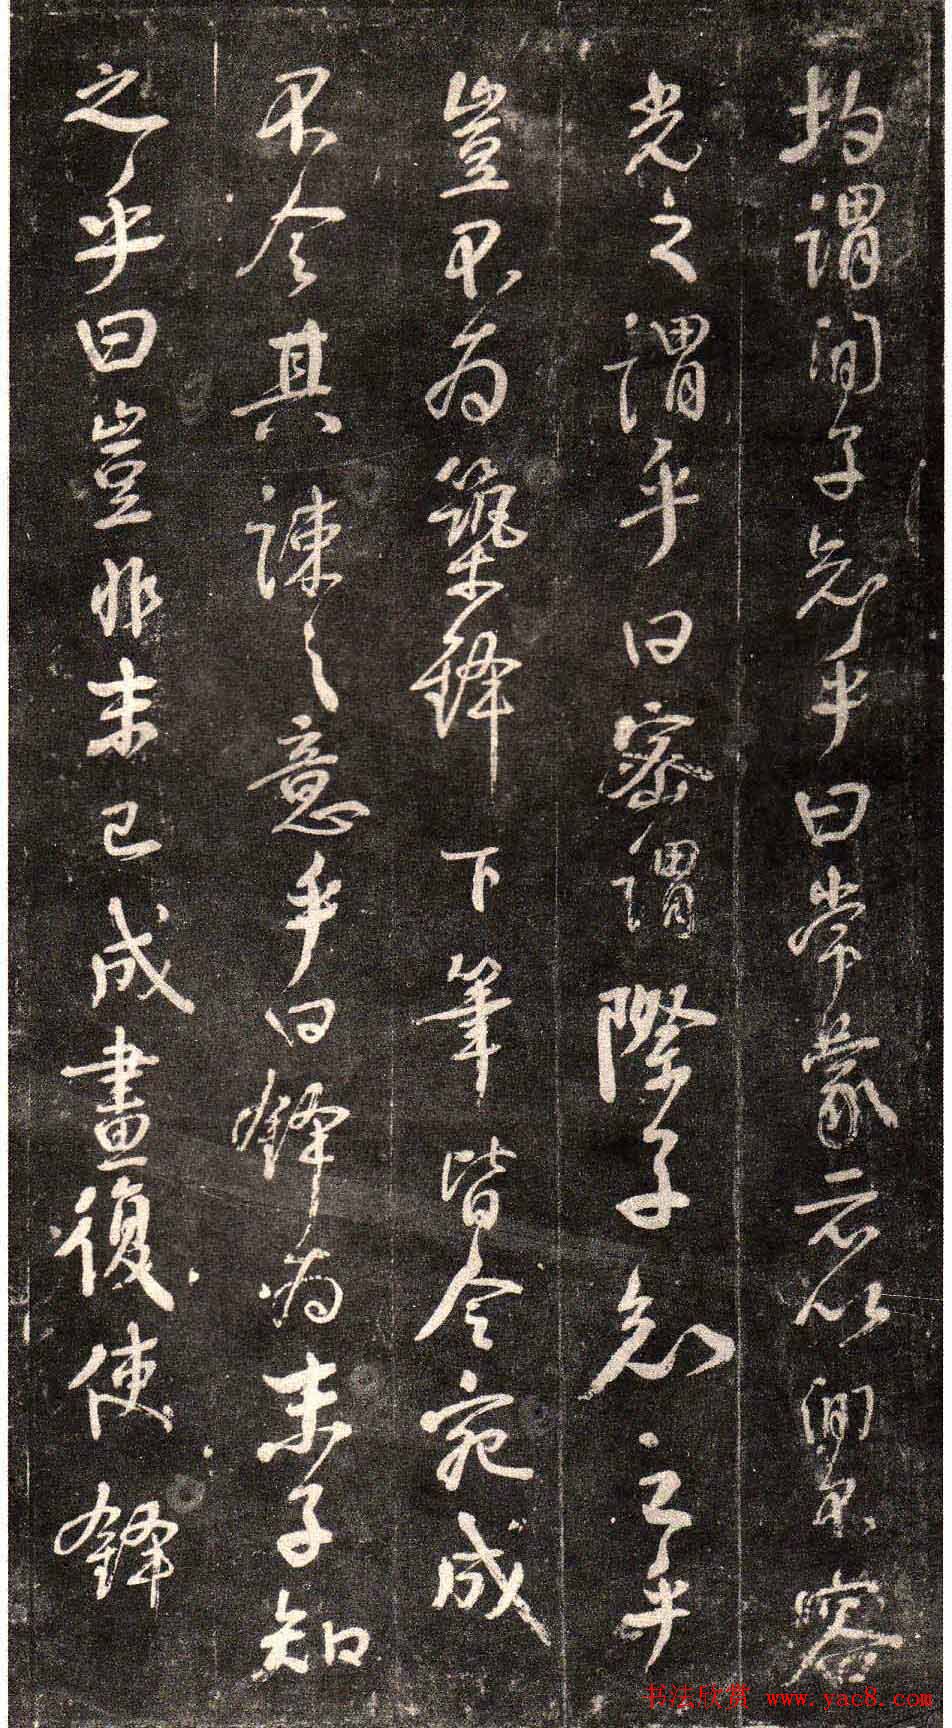 均謂間子知乎曰常蒙示以間不容
光之謂乎曰密謂際子知之乎
豈不為築鋒下筆皆令宛成
不令其疎之意乎曰鋒為末子知
之乎曰豈非末已成畫復使鋒
书法欣赏 www.yac8.com